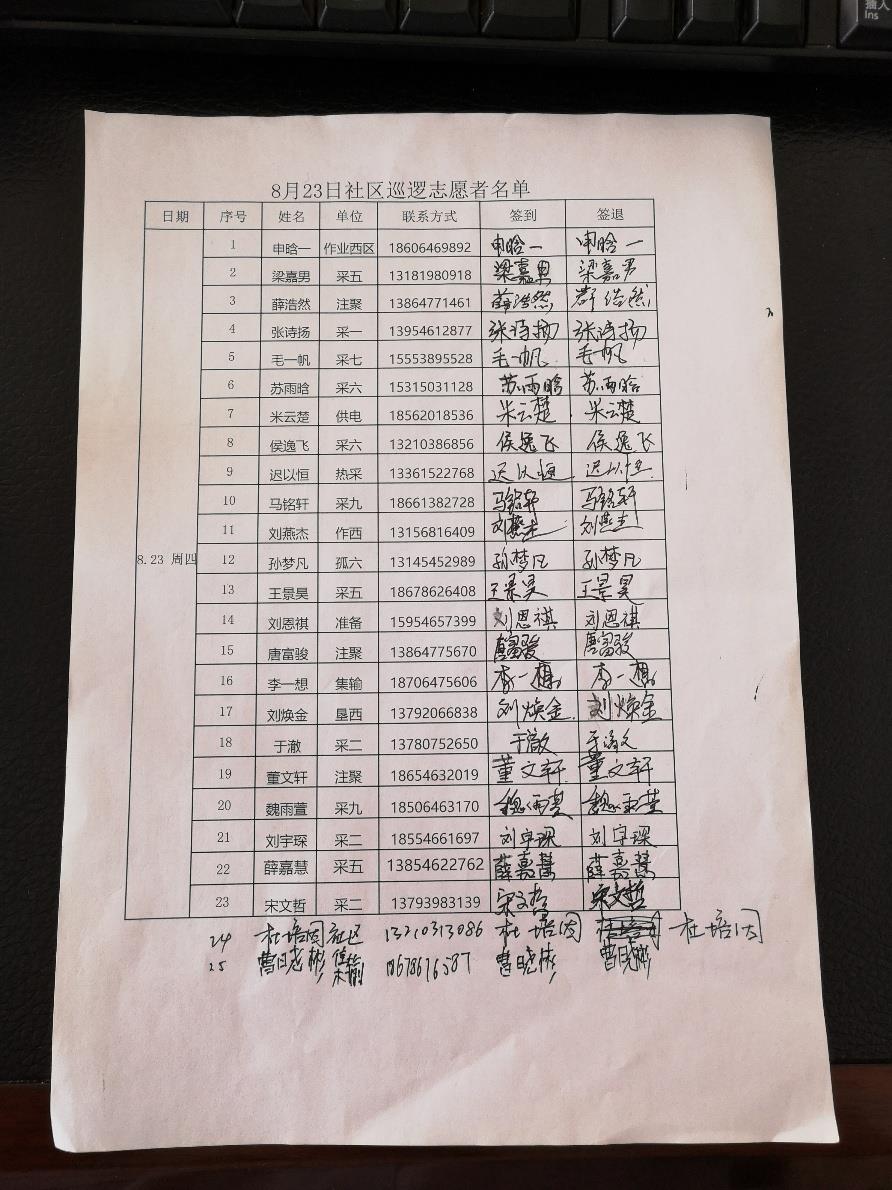 插入
Ins
8月23日社区巡逻志愿者名单
日期 序号 姓名 单位 联系方式 签到 签退
8.23 周四
1 申晗一 作业西区 18606469892 申晗一 申晗一
2 梁嘉男 采五 13181980918 梁嘉男 梁嘉男
3 薛浩然 注聚 13864771461 薛浩然 薛浩然
4 张诗扬 采一 13954612877 张诗扬 张诗扬
5 毛一帆 采七 15553895528 毛一帆 毛一帆
6 苏雨晗 采六 15315031128 苏雨晗 苏雨晗
7 米云楚 供电 18562018536 米云楚 米云楚
8 侯逸飞 采六 13210386856 侯逸飞 侯逸飞
9 迟以恒 热采 13361522768 迟以恒 迟以恒
10 马铭轩 采九 18661382728 马铭轩 马铭轩
11 刘燕杰 作西 13156816409 刘燕杰 刘燕杰
12 孙梦凡 孤六 13145452989 孙梦凡 孙梦凡
13 王景昊 采五 18678626408 王景昊 王景昊
14 刘恩祺 准备 15954657399 刘恩祺 刘恩祺
15 唐富骏 注聚 13864775670 唐富骏 唐富骏
16 李一想 集输 18706475606 李一想 李一想
17 刘焕金 垦西 13792066838 刘焕金 刘焕金
18 于澈 采二 13780752650 于澈 于澈
19 董文轩 注聚 18654632019 董文轩 董文轩
20 魏雨萱 采九 18506463170 魏雨萱 魏雨萱
21 刘宇琛 采二 18554661697 刘宇琛 刘宇琛
22 薛嘉慧 采五 13854622762 薛嘉慧 薛嘉慧
23 宋文哲 采二 13793983139 宋文哲 宋文哲
24 杜培因 社区 13210313086 杜培因 杜培因
25 曹晓彬 集输 18678676587 曹晓彬 曹晓彬